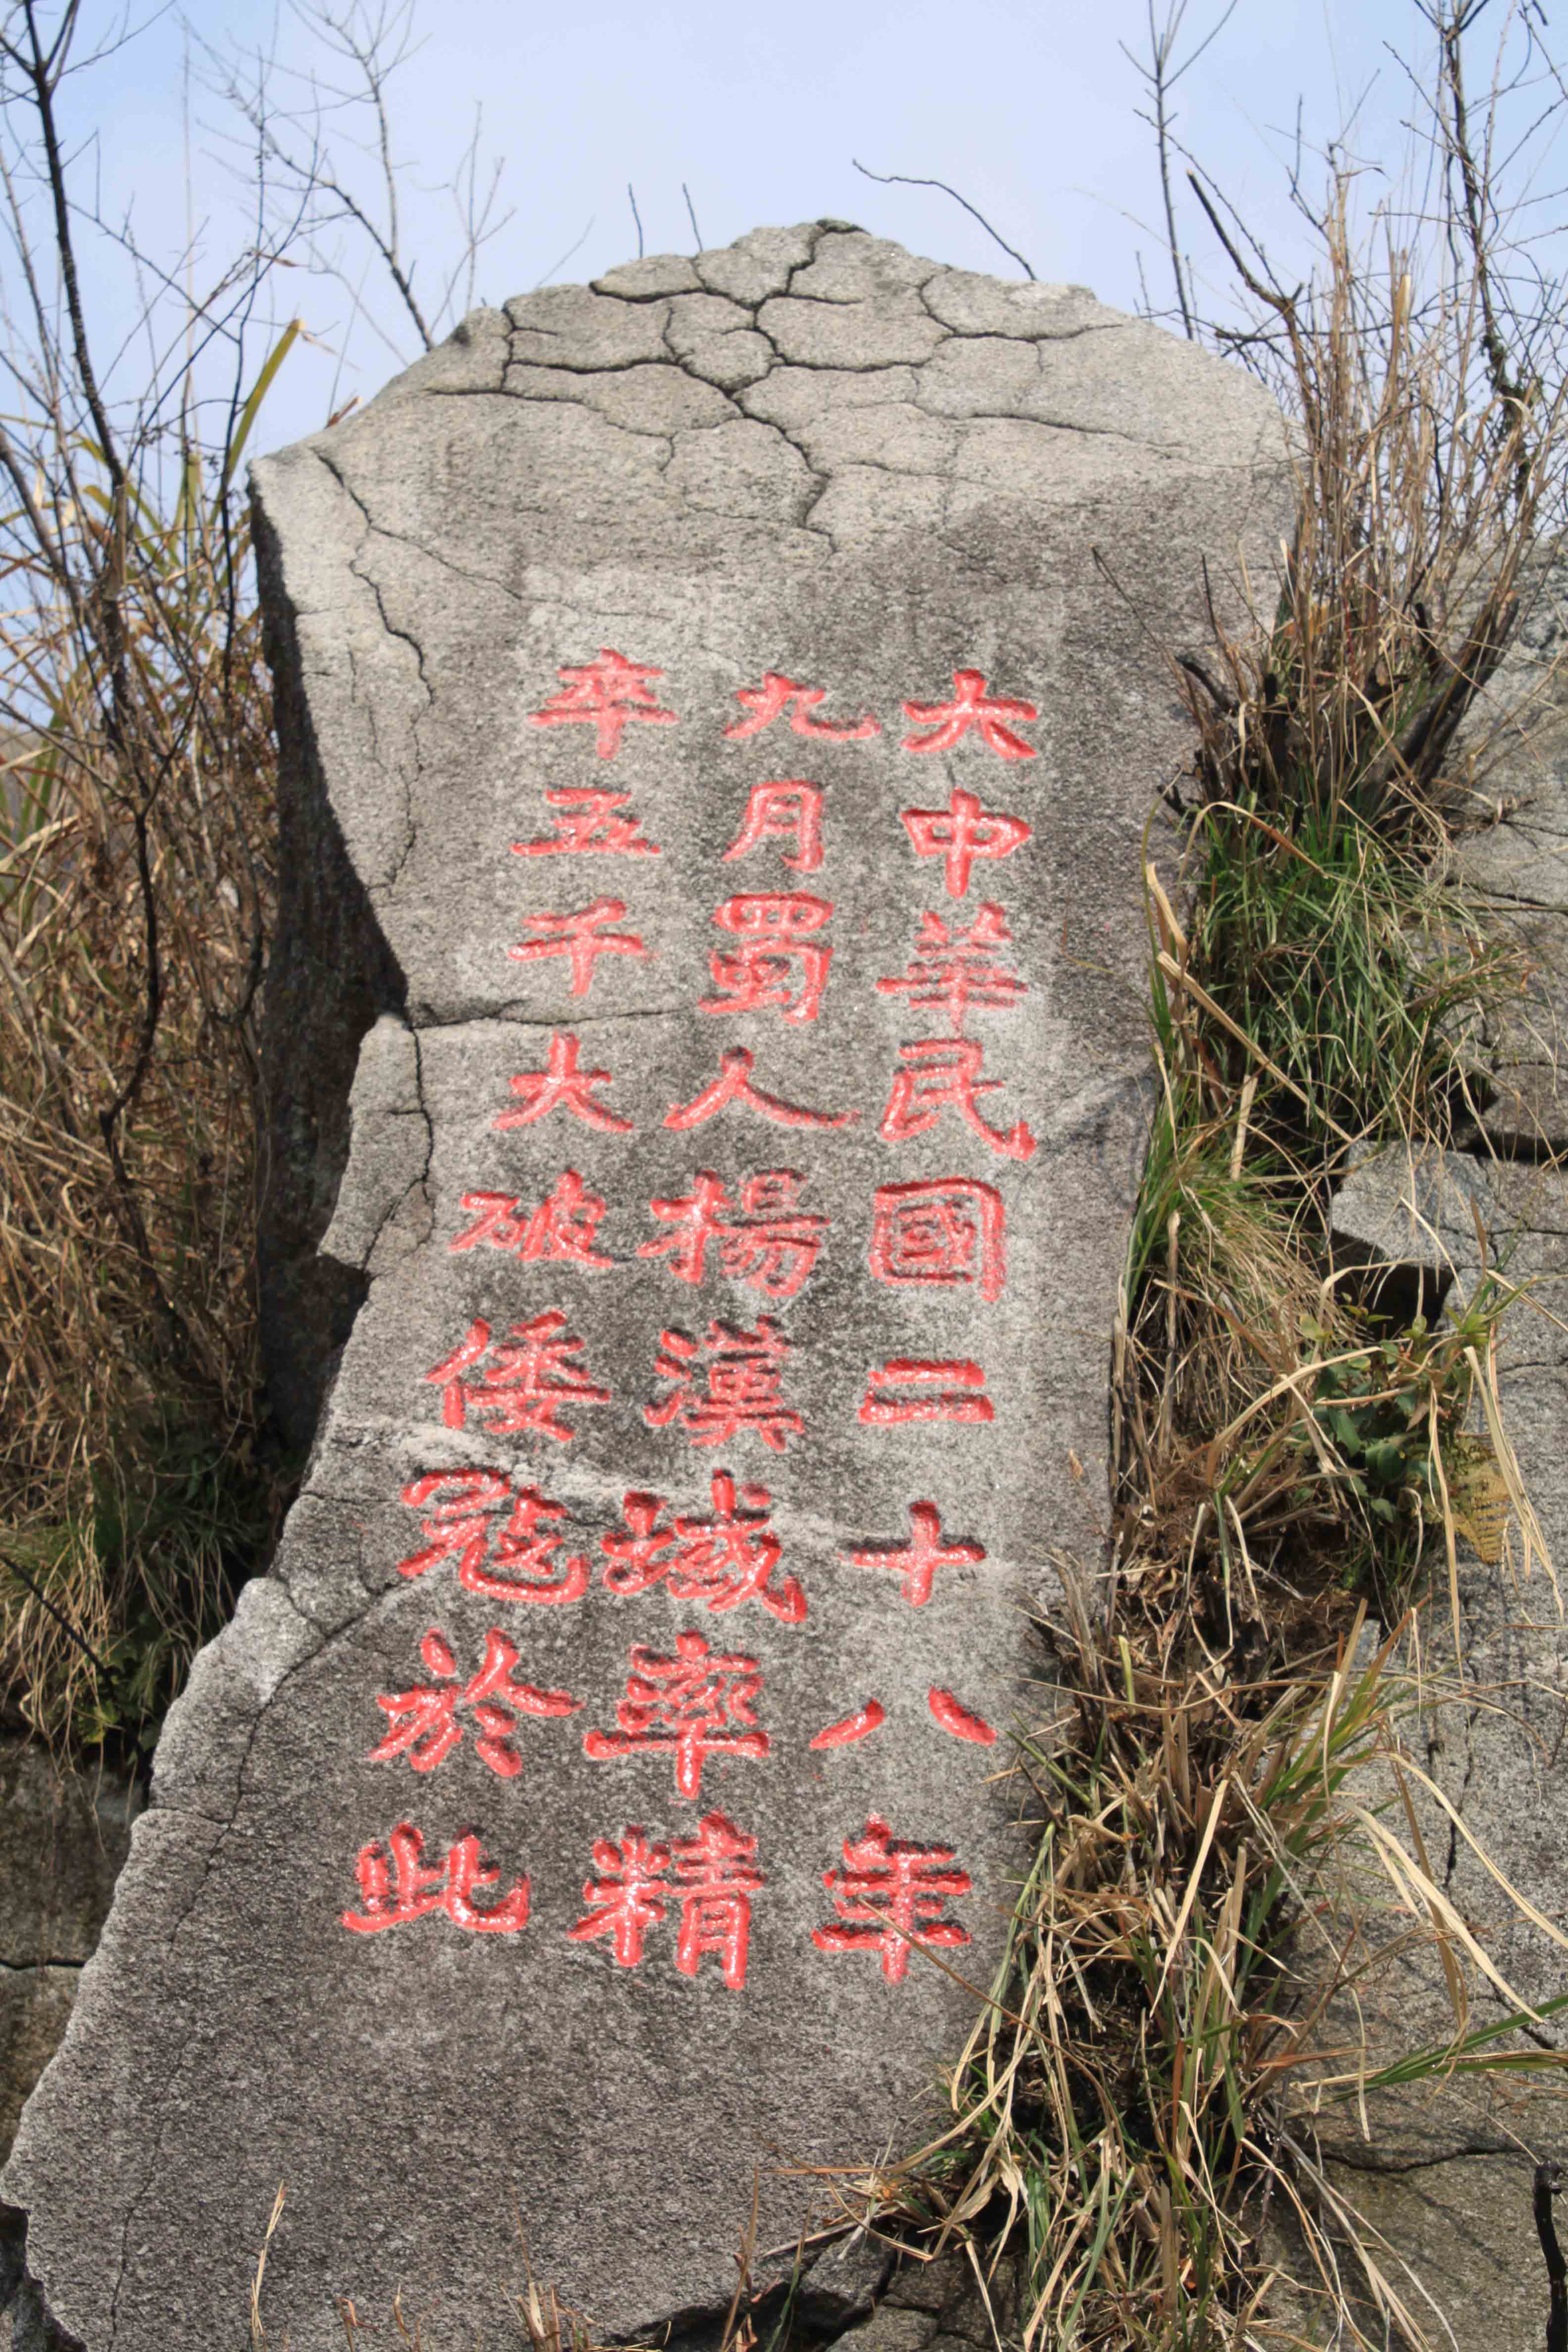 大中華民國二十八年
九月蜀人揚漢域率精
卒五千大破倭寇於此